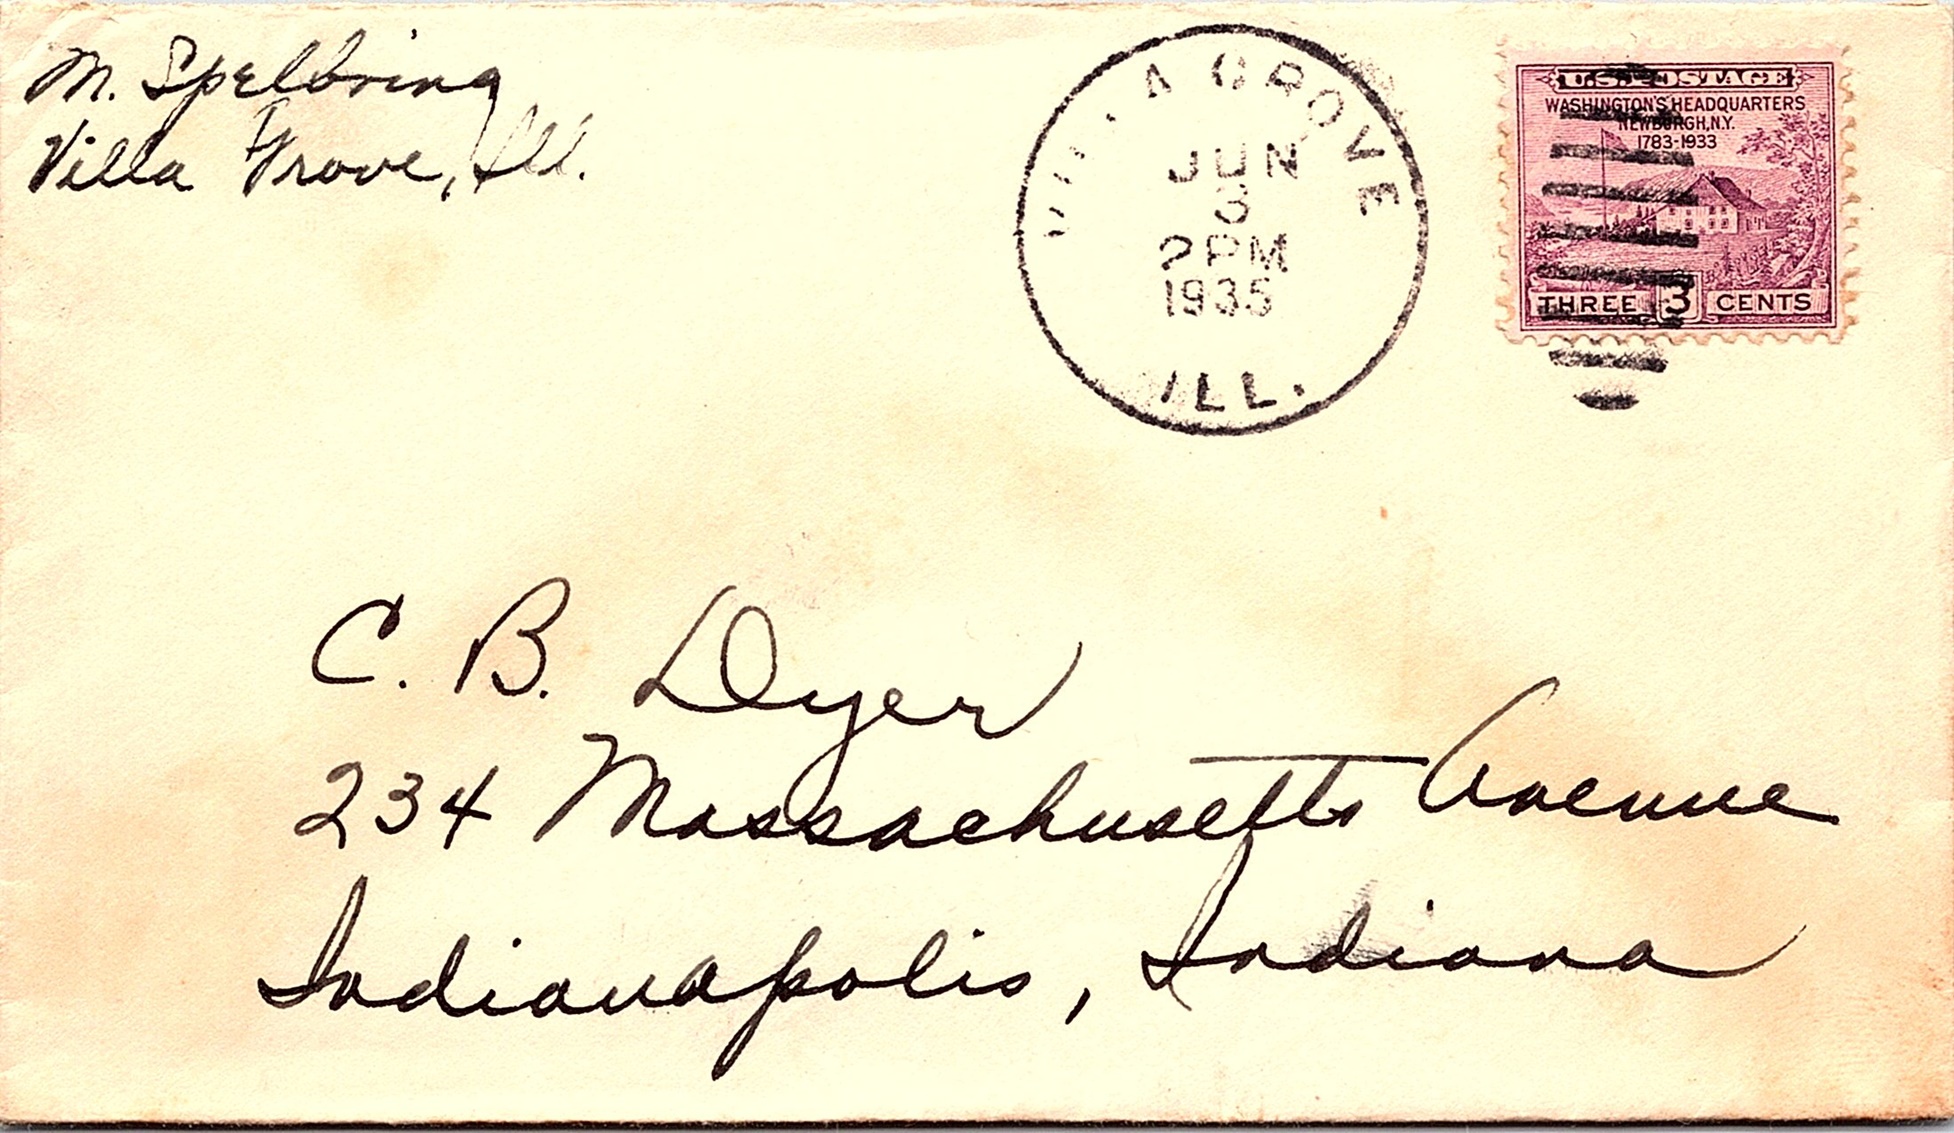 M. Spelbring
Villa Grove, Ill.
VILLA GROVE
JUN
3
2 PM
1935
ILL.
U.S. POSTAGE
WASHINGTON'S HEADQUARTERS
NEWBURGH, N.Y.
1783-1933
THREE 3 CENTS
C. B. Dyer
234 Massachusetts Avenue
Indianapolis, Indiana